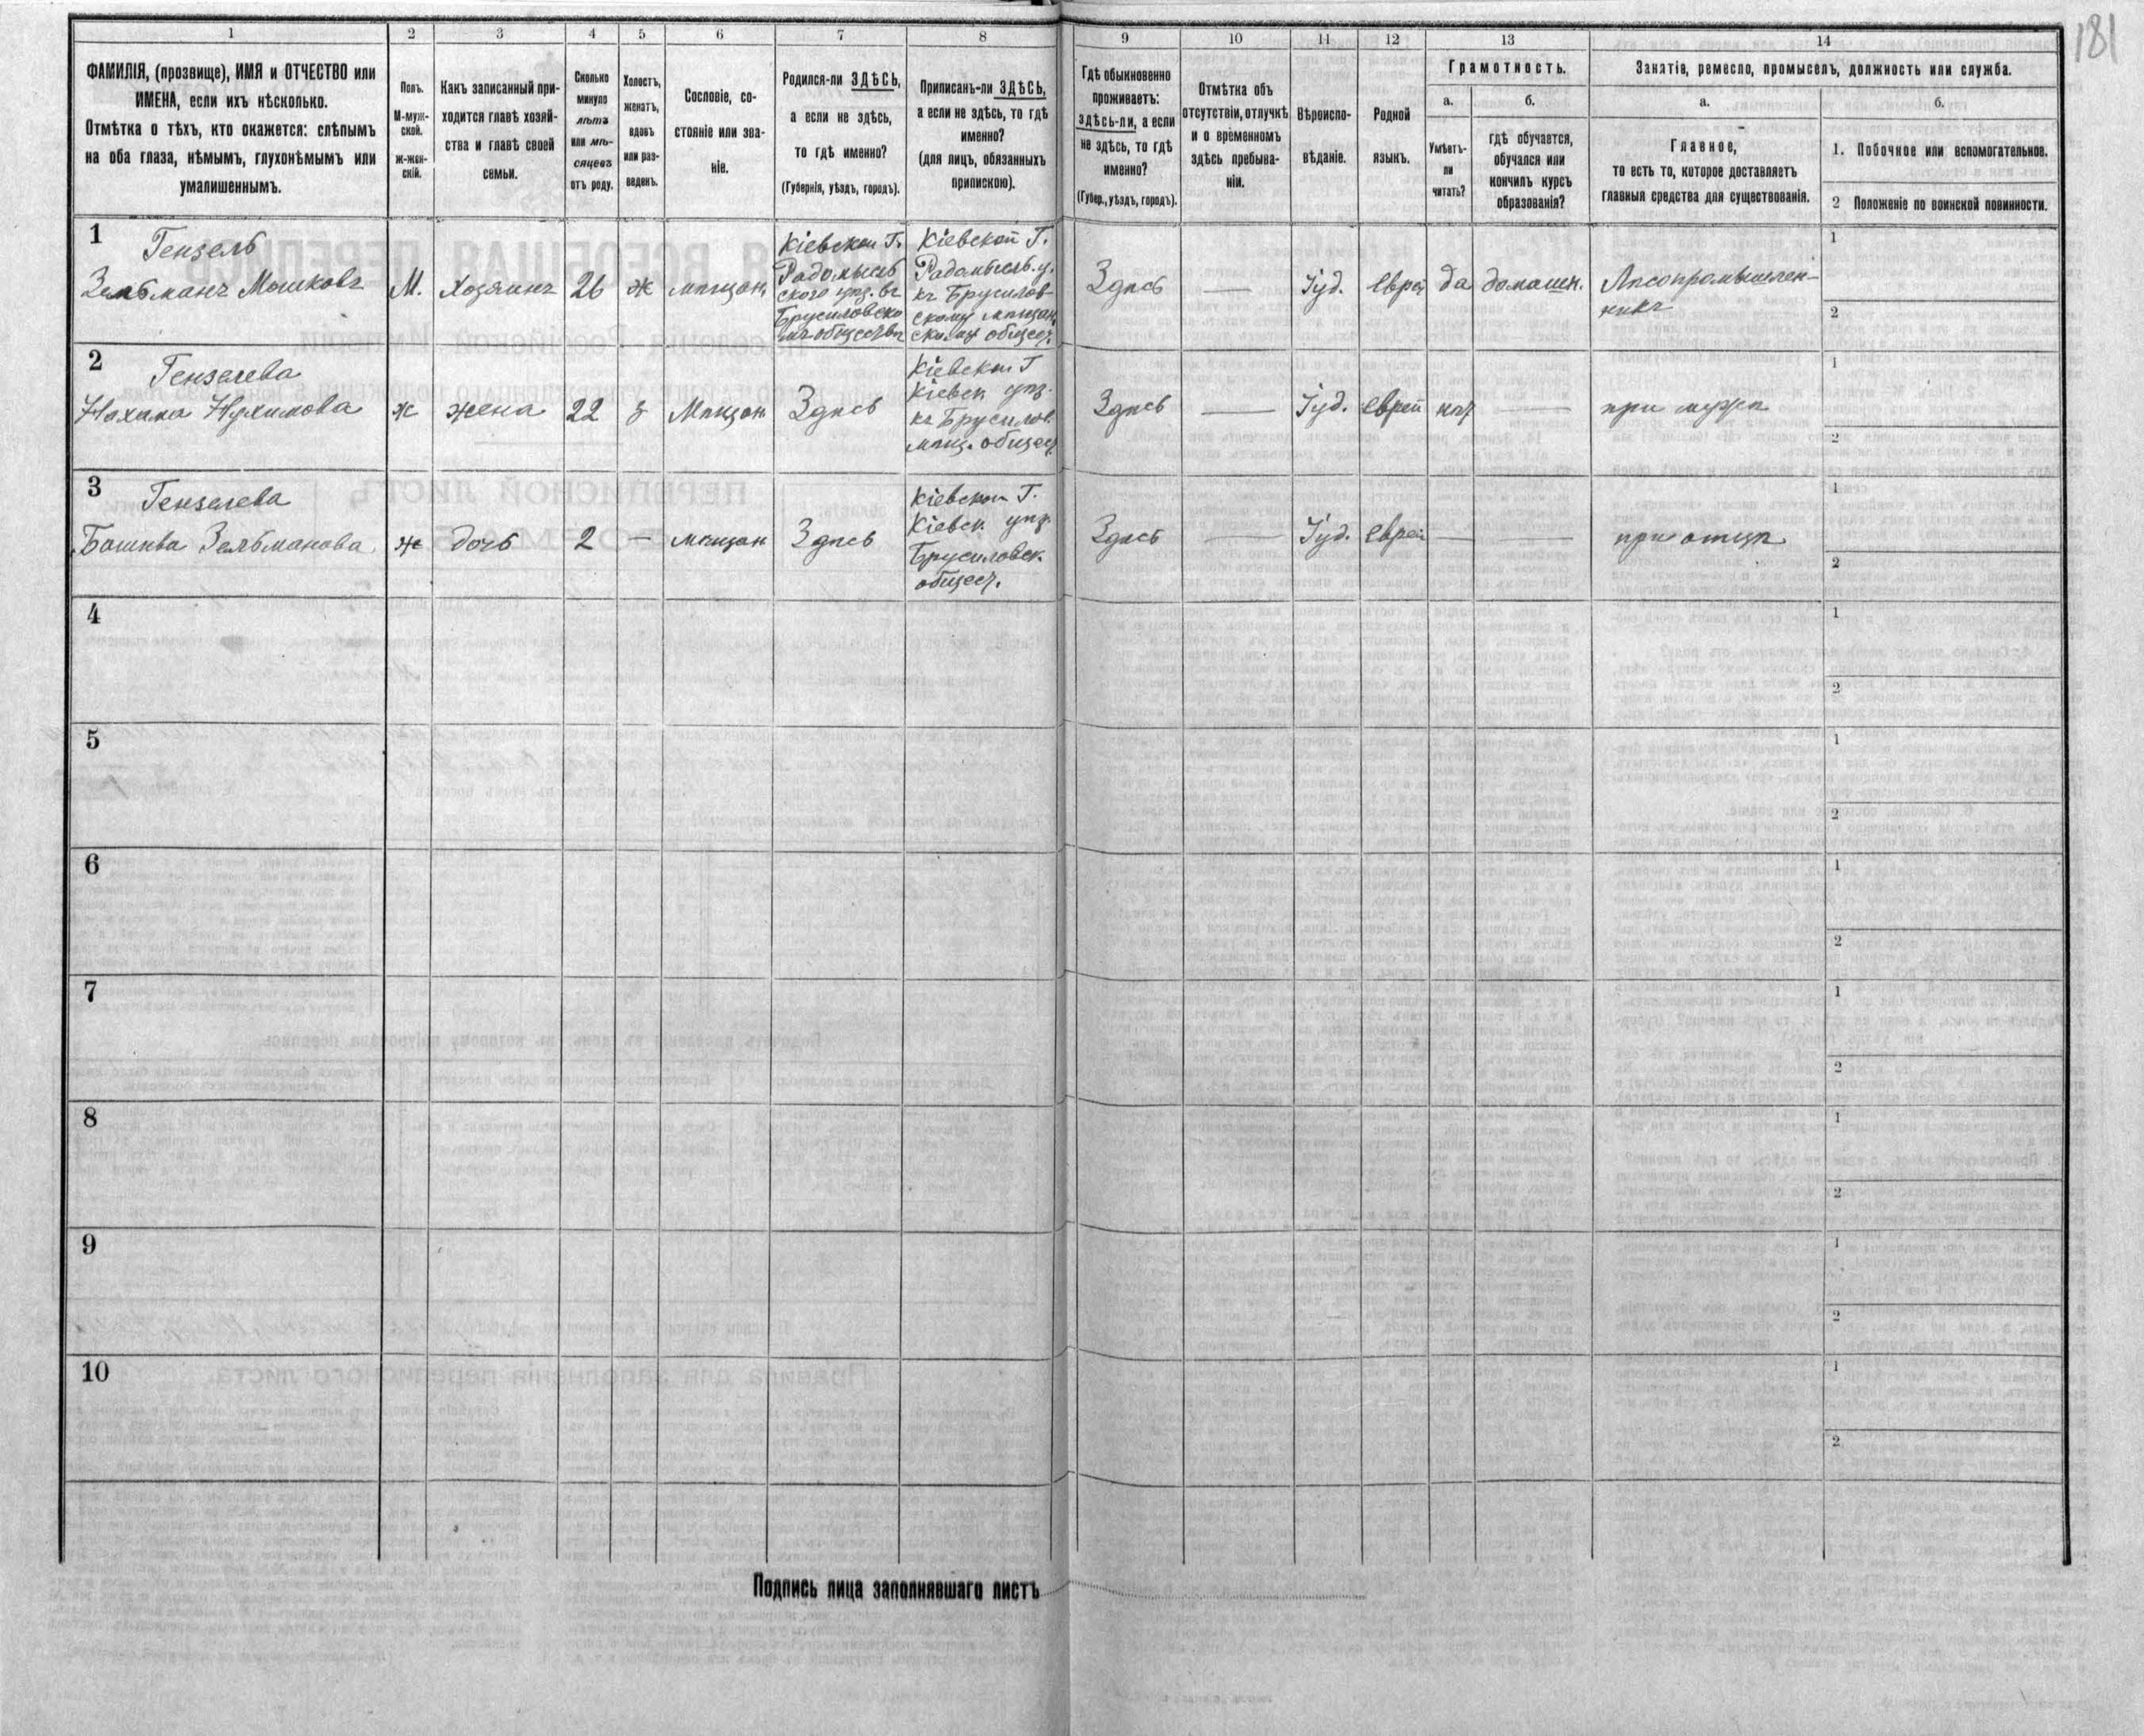 181
1 2 3 4 5 6 7 8 9 10 11 12 13 14
ФАМИЛІЯ, (прозвище), ИМЯ и ОТЧЕСТВО или
ИМЕНА, если ихъ нѣсколько.
Отмѣтка о тѣхъ, кто окажется: слѣпымъ
на оба глаза, нѣмымъ, глухонѣмымъ или
умалишеннымъ.
Полъ.
М-муж-
ской.
ж-жен-
скій.
Какъ записанный при-
ходится главѣ хозяй-
ства и главѣ своей
семьи.
Сколько
минуло
лѣтъ
или мѣ-
сяцевъ
отъ роду.
Холостъ,
женатъ,
вдовъ
или раз-
веденъ.
Сословіе, со-
стояніе или зва-
ніе.
Родился-ли ЗДѢСЬ,
а если не здѣсь,
то гдѣ именно?
(Губернія, уѣздъ, городъ).
Приписанъ-ли ЗДѢСЬ,
а если не здѣсь, то гдѣ
именно?
(для лицъ, обязанныхъ
припискою).
Гдѣ обыкновенно
проживаетъ:
здѣсь-ли, а если
не здѣсь, то гдѣ
именно?
(Губер., уѣздъ, городъ).
Отмѣтка объ
отсутствіи, отлучкѣ
и о временномъ
здѣсь пребыва-
ніи.
Вѣроиспо-
вѣданіе.
Родной
языкъ.
Грамотность.
а.
Умѣетъ-
ли
читать?
б.
гдѣ обучается,
обучался или
кончилъ курсъ
образованія?
Занятіе, ремесло, промыселъ, должность или служба.
а.
Главное,
то есть то, которое доставляетъ
главныя средства для существованія.
б.
1. Побочное или вспомогательное.
2 Положеніе по воинской повинности.
1
Гензель
Зельманъ Мошковъ
М.
Хозяинъ
26
ж
мѣщан.
Кіевской Г.
Радомысль
скаго уѣз. въ
Брусиловско
мъ обществѣ
Кіевской Г.
Радомысль. у.
къ Брусилов-
скому мѣщан.
скому общест.
Здѣсь
—
Іуд.
еврей
да
домашн.
Лѣсопромышлен-
никъ
1
2
2
Гензелева
Нахама Нухимова
ж
жена
22
з
Мѣщан
Здѣсь
Кіевской Г
Кіевск уѣз.
къ Брусилов.
мѣщ. общест
Здѣсь
—
Іуд.
еврей
нѣт
—
при мужѣ
1
2
3
Гензелева
Башива Зельманова.
ж
дочь
2
—
мѣщан
Здѣсь
Кіевской Г.
Кіевск уѣз.
Брусиловск.
общест.
Здѣсь
—
Іуд.
еврей
—
—
при отцѣ
1
2
4
1
2
5
1
2
6
1
2
7
1
2
8
1
2
9
1
2
10
1
2
Подпись лица заполнявшаго листъ